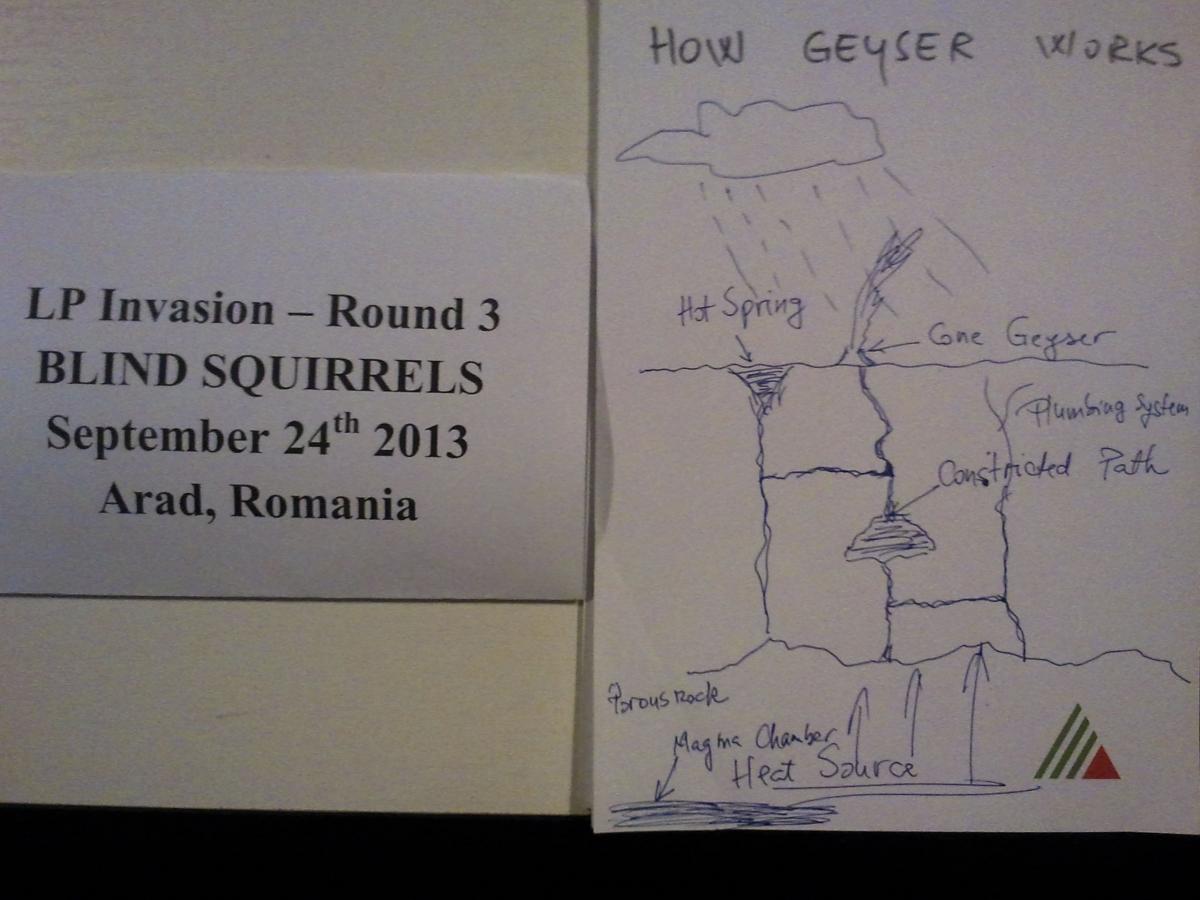 LP Invasion – Round 3
BLIND SQUIRRELS
September 24th 2013
Arad, Romania
HOW GEYSER WORKS
Hot Spring
Cone Geyser
Plumbing System
Constricted Path
Porous rock
Magma Chamber
Heat Source